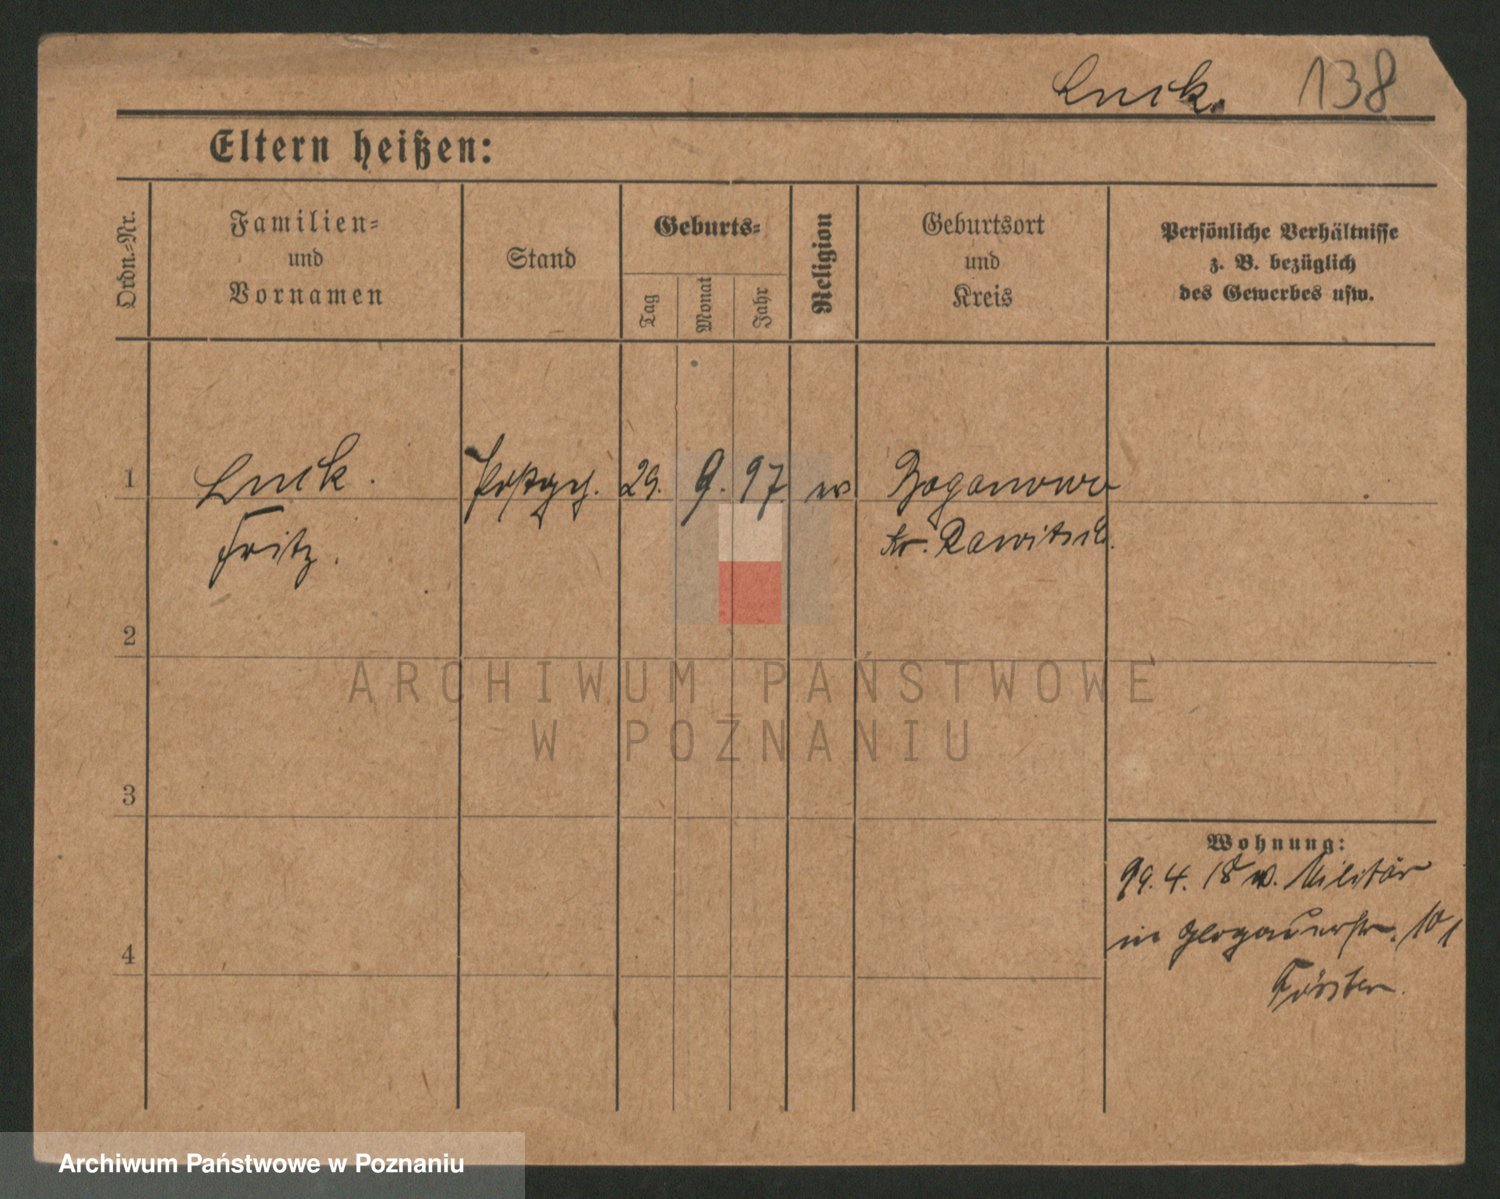 Luck. 138
Eltern heißen:
Ordn.-Nr.
Familien-
und
Vornamen
Stand
Geburts-
Tag
Monat
Jahr
Religion
Geburtsort
und
Kreis
Persönliche Verhältnisse
z. B. bezüglich
des Gewerbes usw.
1
Luck. 29. 9. 97
Fritz.
Kr. Rawitsch.
2
3
4
Wohnung:
4. 18 v. Militär
in Glogauerstr. 10
ARCHIWUM PAŃSTWOWE
W POZNANIU
Archiwum Państwowe w Poznaniu